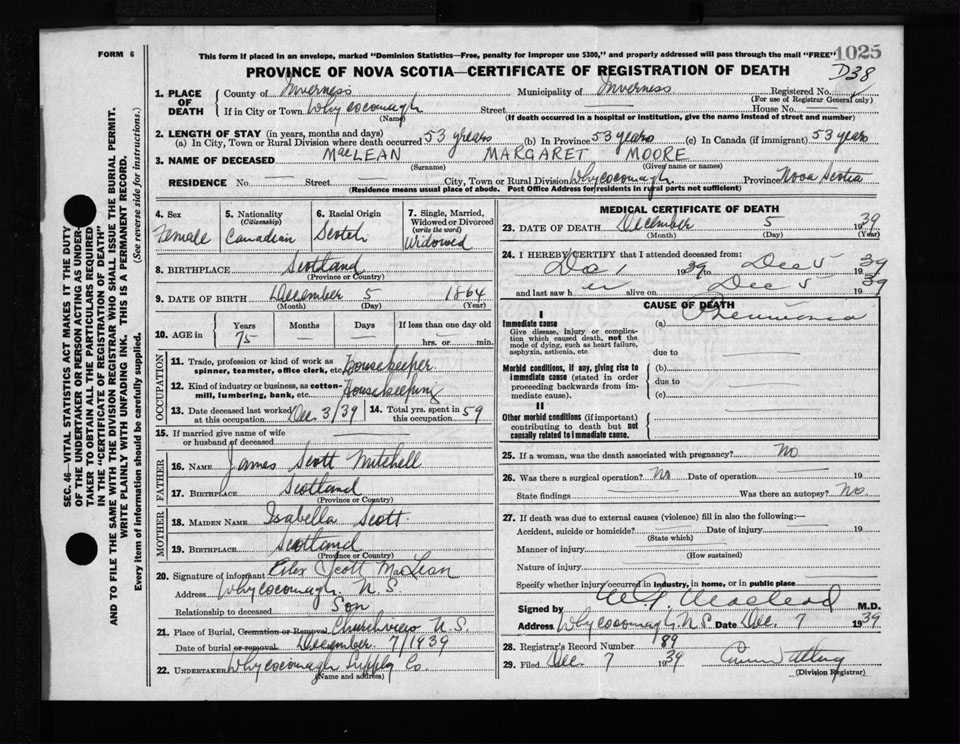 FORM 6
This form if placed in an envelope, marked "Dominion Statistics—Free, penalty for improper use $300," and properly addressed will pass through the mail "FREE"
1025
PROVINCE OF NOVA SCOTIA—CERTIFICATE OF REGISTRATION OF DEATH
D38
1. PLACE OF DEATH
County of Inverness Municipality of Inverness Registered No.
(For use of Registrar General only)
If in City or Town Whycocomagh Street House No.
(Name) (If death occurred in a hospital or institution, give the name instead of street and number)
2. LENGTH OF STAY (in years, months and days)
(a) In City, Town or Rural Division where death occurred 53 years (b) In Province 53 years (c) In Canada (if immigrant) 53 years
3. NAME OF DECEASED MacLEAN MARGARET MOORE
(Surname) (Given name or names)
RESIDENCE No. Street City, Town or Rural Division Whycocomagh Province Nova Scotia
(Residence means usual place of abode. Post Office Address for residents in rural parts not sufficient)
4. Sex
Female
5. Nationality
(Citizenship)
Canadian
6. Racial Origin
Scotch
7. Single, Married, Widowed or Divorced
(write the word)
Widowed
8. BIRTHPLACE Scotland
(Province or Country)
9. DATE OF BIRTH December 5 1864
(Month) (Day) (Year)
10. AGE in Years Months Days If less than one day old
75 hrs. or min.
OCCUPATION
11. Trade, profession or kind of work as
spinner, teamster, office clerk, etc. Housekeeper
12. Kind of industry or business, as cotton-
mill, lumbering, bank, etc. Housekeeping
13. Date deceased last worked at this occupation Dec. 3/39 14. Total yrs. spent in this occupation 59
15. If married give name of wife
or husband of deceased
FATHER
16. NAME James Scott Mitchell
17. BIRTHPLACE Scotland
(Province or Country)
MOTHER
18. MAIDEN NAME Isabella Scott
19. BIRTHPLACE Scotland
(Province or Country)
20. Signature of informant Scott MacLean
Address Whycocomagh N.S.
Relationship to deceased Son
21. Place of Burial, Cremation or Removal Churchview N.S.
Date of burial or removal December 7/1939
22. UNDERTAKER Whycocomagh Supply Co.
(Name and address)
MEDICAL CERTIFICATE OF DEATH
23. DATE OF DEATH December 5 1939
(Month) (Day) (Year)
24. I HEREBY CERTIFY that I attended deceased from:
Dec 1 1939 to Dec 5 1939
and last saw her alive on Dec 5 1939
CAUSE OF DEATH
I
Immediate cause (a) Pneumonia
Give disease, injury or complication which caused death, not the mode of dying, such as heart failure, asphyxia, asthenia, etc.
due to
Morbid conditions, if any, giving rise to immediate cause (stated in order proceeding backwards from immediate cause).
(b)
due to
(c)
II
Other morbid conditions (if important) contributing to death but not causally related to immediate cause.
25. If a woman, was the death associated with pregnancy? No
26. Was there a surgical operation? No Date of operation 19
State findings Was there an autopsy? No.
27. If death was due to external causes (violence) fill in also the following:—
Accident, suicide or homicide? Date of injury 19
(State which)
Manner of injury
(How sustained)
Nature of injury
Specify whether injury occurred in Industry, in home, or in public place
Signed by Macleod M.D.
Address Whycocomagh, N.S. Date Dec. 7 1939
28. Registrar's Record Number 89
29. Filed Dec 7 1939
(Division Registrar)
SEC. 46—VITAL STATISTICS ACT MAKES IT THE DUTY
OF THE UNDERTAKER OR PERSON ACTING AS UNDER-
TAKER TO OBTAIN ALL THE PARTICULARS REQUIRED
IN THE "CERTIFICATE OF REGISTRATION OF DEATH"
AND TO FILE THE SAME WITH THE DIVISION REGISTRAR WHO SHALL ISSUE THE BURIAL PERMIT.
WRITE PLAINLY WITH UNFADING INK. THIS IS A PERMANENT RECORD.
Every item of information should be carefully supplied. (See reverse side for instructions.)